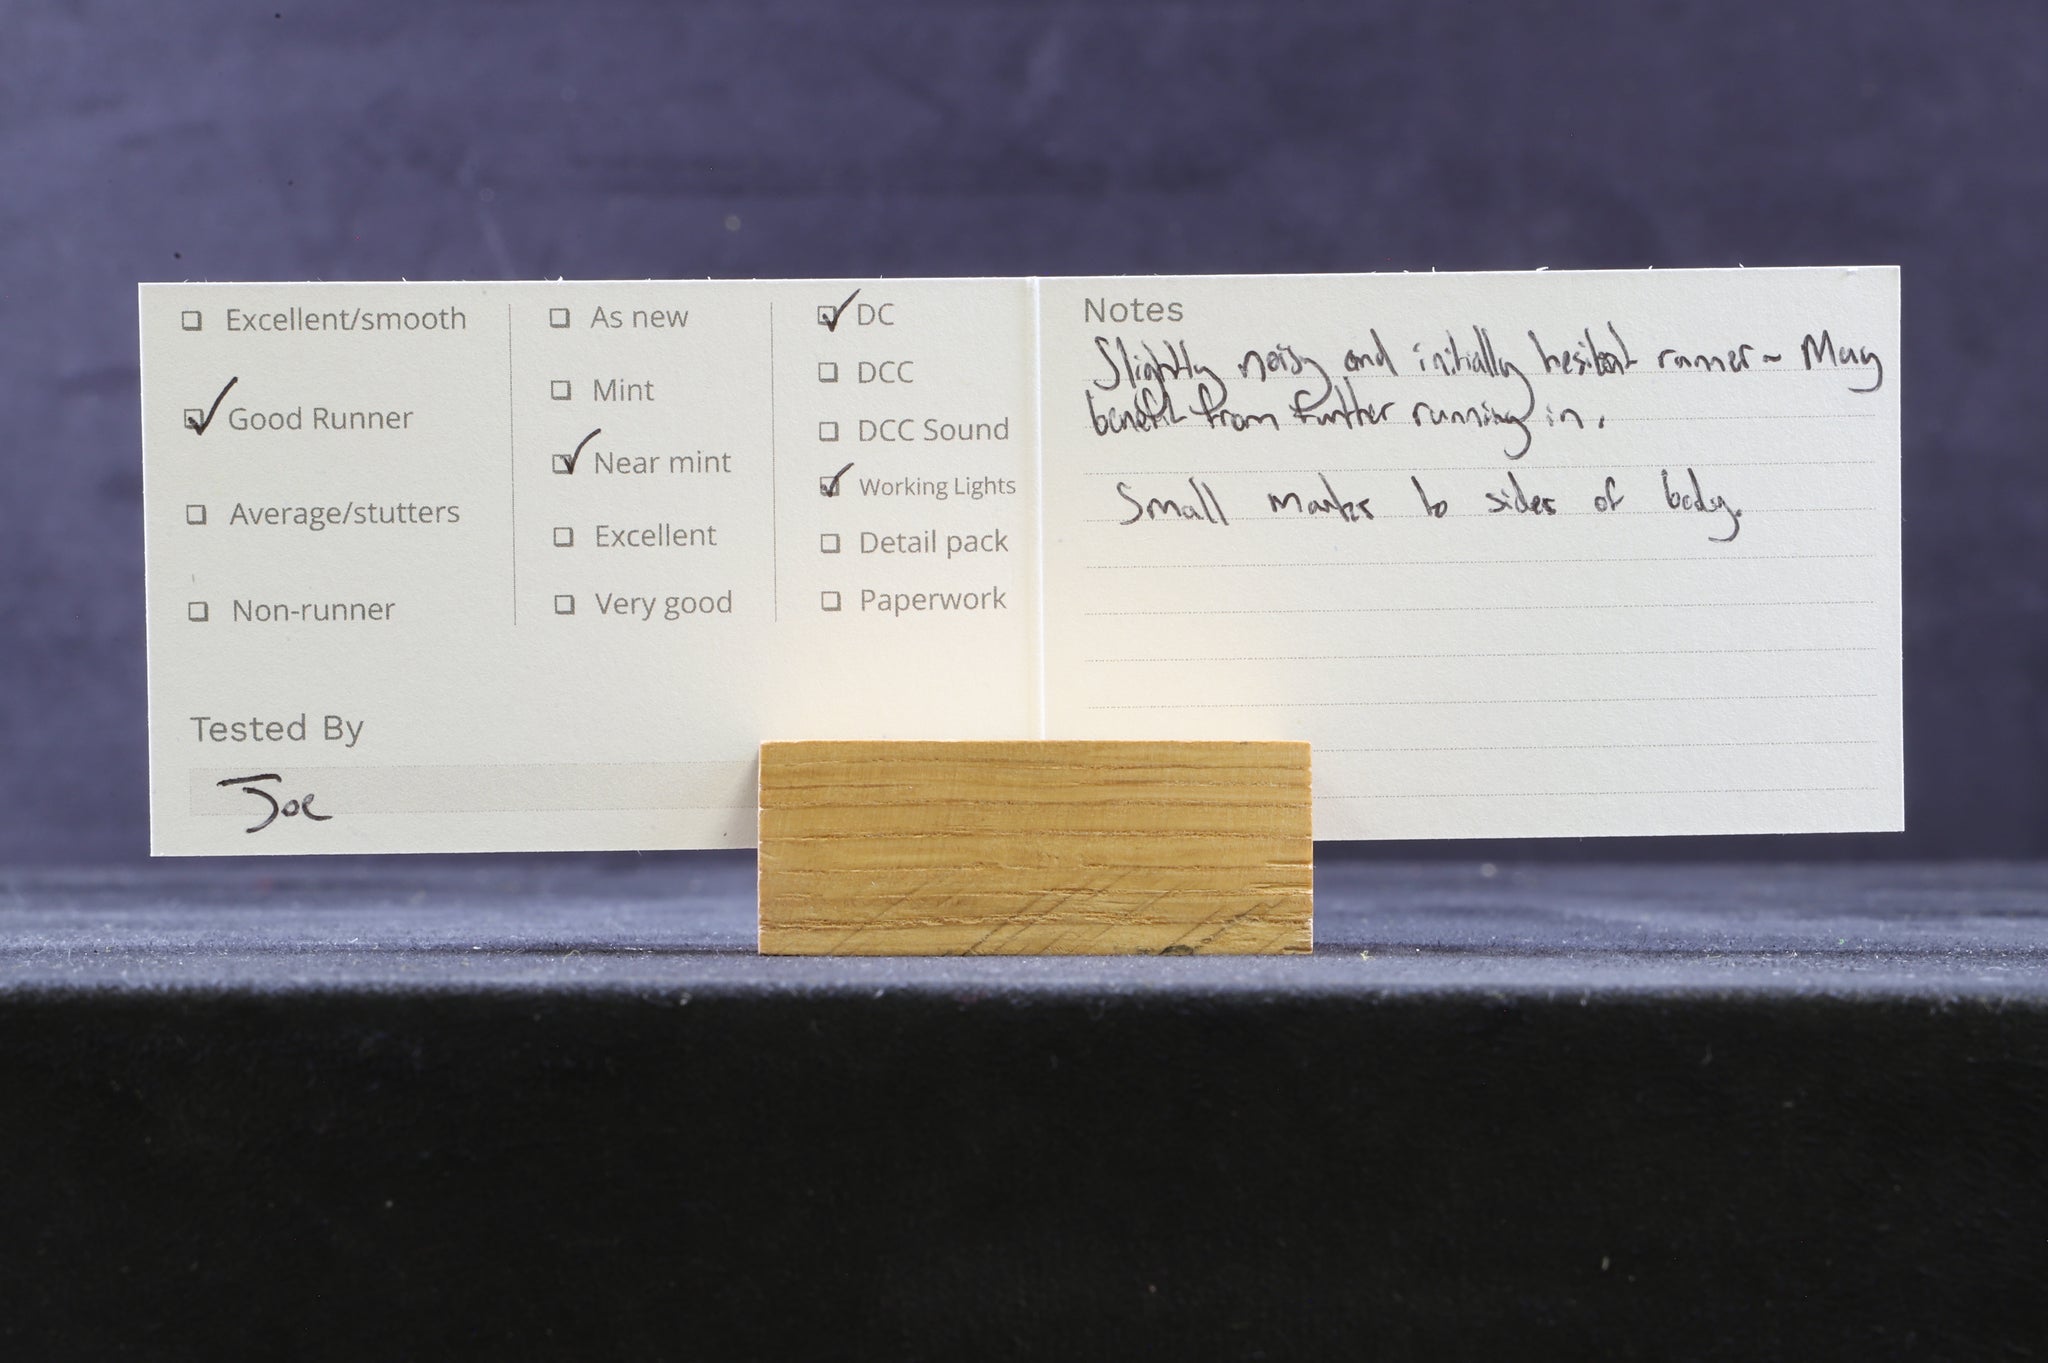 Excellent/smooth
Good Runner
Average/stutters
Non-runner
As new
Mint
Near mint
Excellent
Very good
DC
DCC
DCC Sound
Working Lights
Detail pack
Paperwork
Tested By
Joe
Notes
Slightly noisy and initially hesitant runner ~ May
benefit from further running in.
Small marks to sides of body.